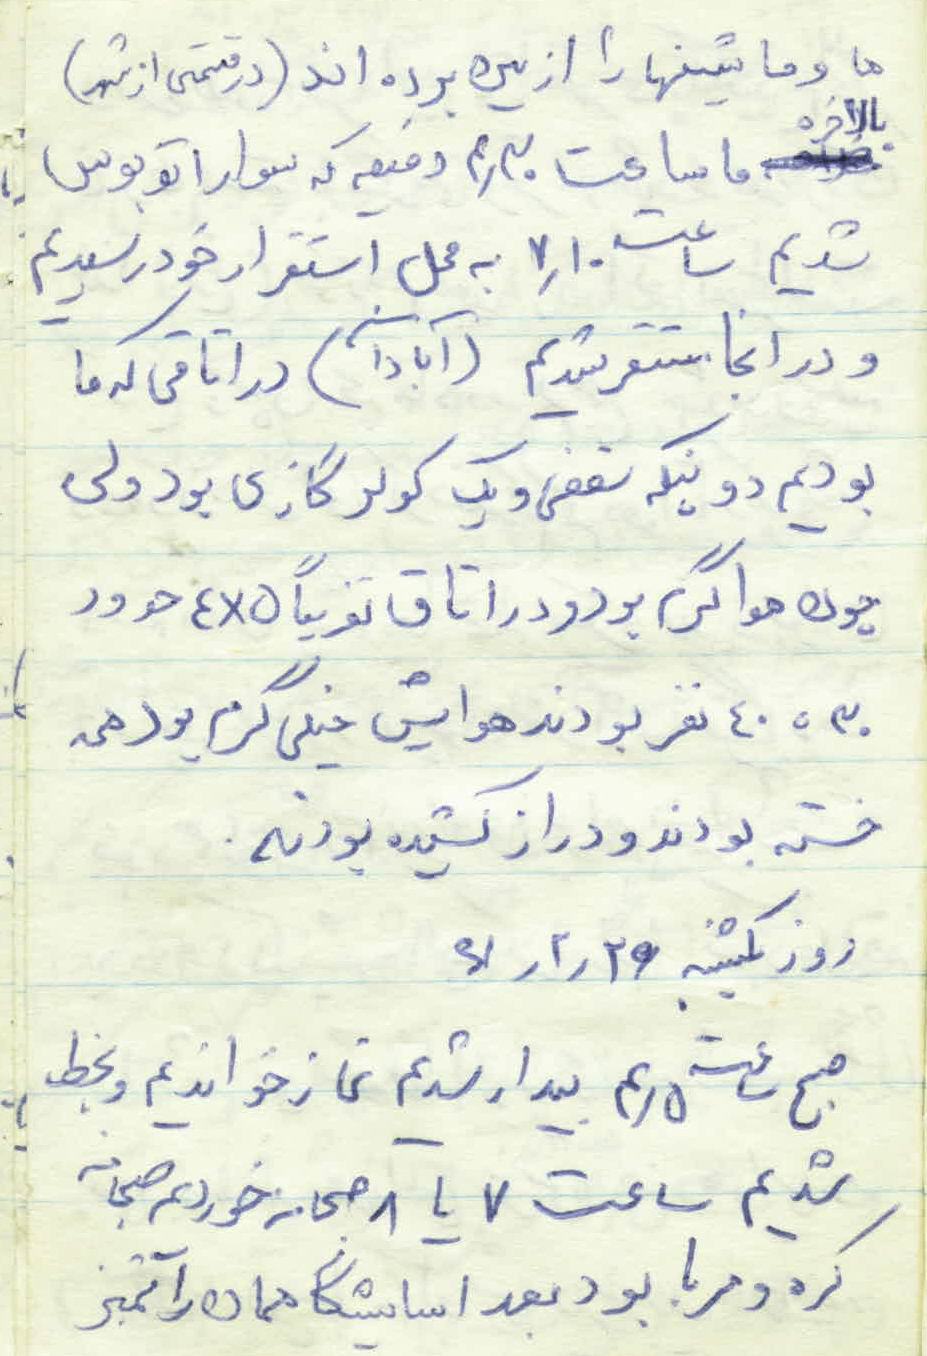 ها و ماشینها را از بین برده اند (در قسمتی از شهر)
بالاخره
ما ساعت ۳۰ر۴ دقیقه که سوار اتوبوس
شدیم ساعت ۱۰ر۷ به محل استقرار خود رسیدیم
و در انجا مستقر شدیم (آبادان) در اتاقی که ما
بودیم دو پنکه سقفی و یک کولر گازی بود ولی
چون هوا گرم بود و در اتاق تقریباً ٤x٥ حدود
۳۰ ، ٤۰ نفر بودند هوایش خیلی گرم بود همه
خسته بودند و دراز کشیده بودند.
روز یکشنبه ۲۶ر۲ر۶۱
صبح ساعت ۵ر۴ بیدار شدیم نماز خواندیم و بخط
شدیم ساعت ۷ یا ۸ صبحانه خوردیم صبحانه
کره و مربا بود بعد اسایشگاهمان را تمیز